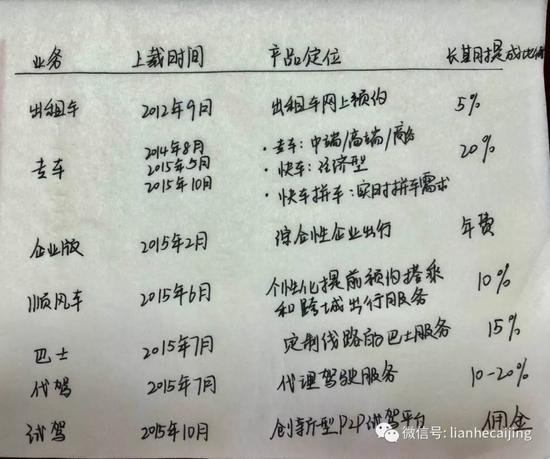 业务 上载时间 产品定位 长期提成比例
出租车 2012年9月 出租车网上预约 5%
专车 2014年8月 ·专车:中端/高端/商务 20%
2015年5月 ·快车:经济型
2015年10月 ·快车拼车:实时拼车需求
企业版 2015年2月 综合性企业出行 年费
顺风车 2015年6月 个性化提前预约搭乘 10%
和跨城出行服务
巴士 2015年7月 定制线路的巴士服务 15%
代驾 2015年7月 代理驾驶服务 10-20%
试驾 2015年10月 创新型P2P试驾平台 佣金
微信号: lianhecaijing